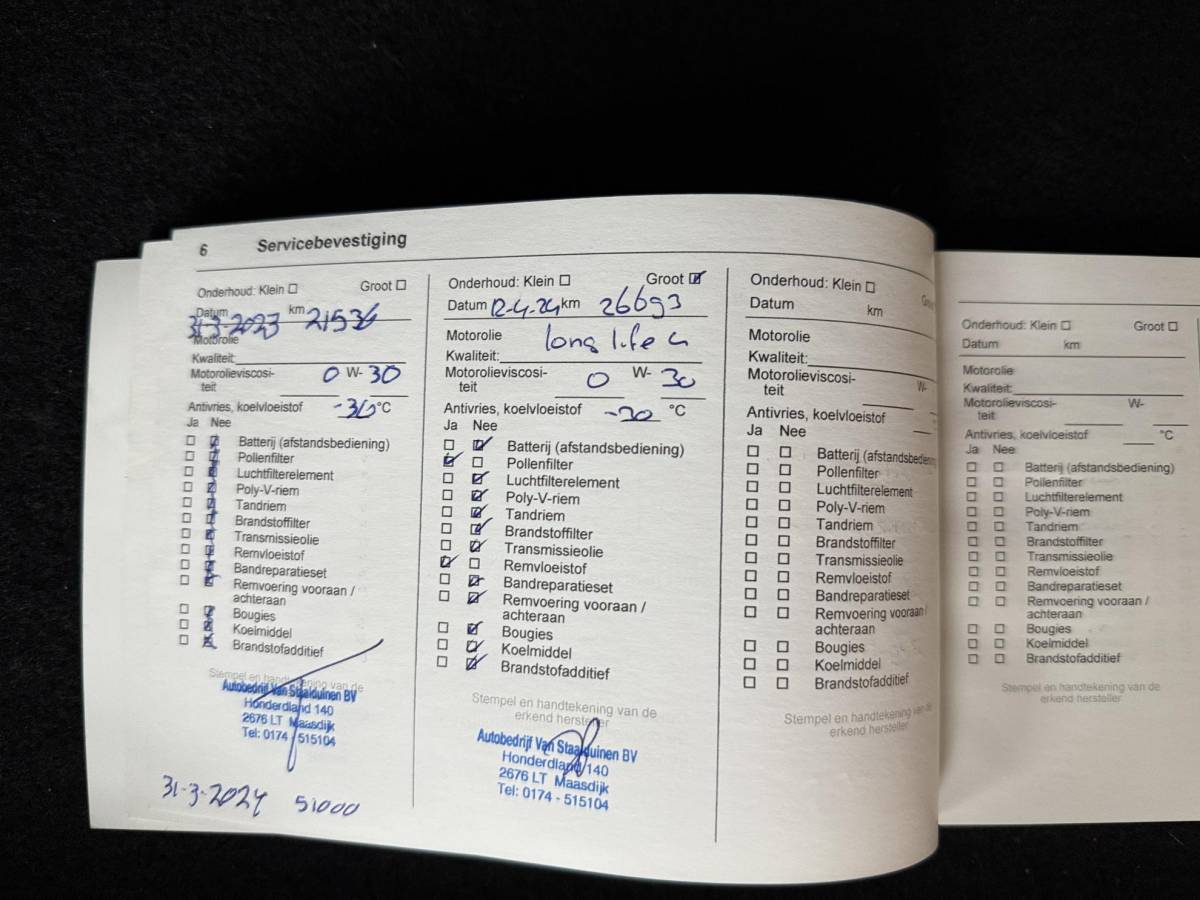 6 Servicebevestiging
Onderhoud: Klein ☐ Groot ☐
Datum 31-3-2023 km 21536
Motorolie
Kwaliteit:
Motorolieviscosi-
teit 0 W- 30
Antivries, koelvloeistof -36 °C
Ja Nee
☐ ☑ Batterij (afstandsbediening)
☐ ☑ Pollenfilter
☐ ☑ Luchtfilterelement
☐ ☑ Poly-V-riem
☐ ☑ Tandriem
☐ ☑ Brandstoffilter
☐ ☑ Transmissieolie
☐ ☑ Remvloeistof
☐ ☑ Bandreparatieset
☐ ☑ Remvoering vooraan /
achteraan
☐ ☑ Bougies
☐ ☑ Koelmiddel
☐ ☑ Brandstofadditief
Stempel en handtekening van de
Autobedrijf Van Staalduinen BV
Honderdland 140
2676 LT Maasdijk
Tel: 0174 - 515104
31-3-2024 51000
Onderhoud: Klein ☐ Groot ☑
Datum 12-4-24 km 26693
Motorolie long life
Kwaliteit:
Motorolieviscosi-
teit 0 W- 30
Antivries, koelvloeistof -30 °C
Ja Nee
☐ ☑ Batterij (afstandsbediening)
☑ ☐ Pollenfilter
☐ ☑ Luchtfilterelement
☐ ☑ Poly-V-riem
☐ ☑ Tandriem
☐ ☑ Brandstoffilter
☐ ☑ Transmissieolie
☑ ☐ Remvloeistof
☐ ☑ Bandreparatieset
☐ ☑ Remvoering vooraan /
achteraan
☐ ☑ Bougies
☐ ☑ Koelmiddel
☐ ☑ Brandstofadditief
Stempel en handtekening van de
erkend hersteller
Autobedrijf Van Staalduinen BV
Honderdland 140
2676 LT Maasdijk
Tel: 0174 - 515104
Onderhoud: Klein ☐
Datum km
Motorolie
Kwaliteit:
Motorolieviscosi-
teit W-
Antivries, koelvloeistof
Ja Nee
☐ ☐ Batterij (afstandsbedienin
☐ ☐ Pollenfilter
☐ ☐ Luchtfilterelement
☐ ☐ Poly-V-riem
☐ ☐ Tandriem
☐ ☐ Brandstoffilter
☐ ☐ Transmissieolie
☐ ☐ Remvloeistof
☐ ☐ Bandreparatieset
☐ ☐ Remvoering vooraan /
achteraan
☐ ☐ Bougies
☐ ☐ Koelmiddel
☐ ☐ Brandstofadditief
Stempel en handtekening van de
erkend hersteller
Onderhoud: Klein ☐ Groot ☐
Datum km
Motorolie
Kwaliteit:
Motorolieviscosi-
teit W-
Antivries, koelvloeistof °C
Ja Nee
☐ ☐ Batterij (afstandsbediening)
☐ ☐ Pollenfilter
☐ ☐ Luchtfilterelement
☐ ☐ Poly-V-riem
☐ ☐ Tandriem
☐ ☐ Brandstoffilter
☐ ☐ Transmissieolie
☐ ☐ Remvloeistof
☐ ☐ Bandreparatieset
☐ ☐ Remvoering vooraan /
achteraan
☐ ☐ Bougies
☐ ☐ Koelmiddel
☐ ☐ Brandstofadditief
Stempel en handtekening van de
erkend hersteller